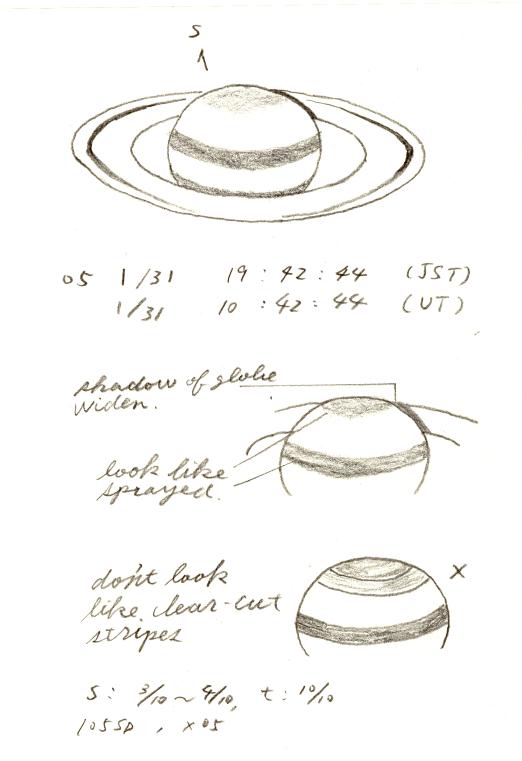 S
05 1/31 19:42:44 (JST)
1/31 10:42:44 (UT)
shadow of globe
widen.
look like
sprayed.
don't look
like clear-cut
stripes
x
S: 3/10~4/10, t: 10/10
105SD, x